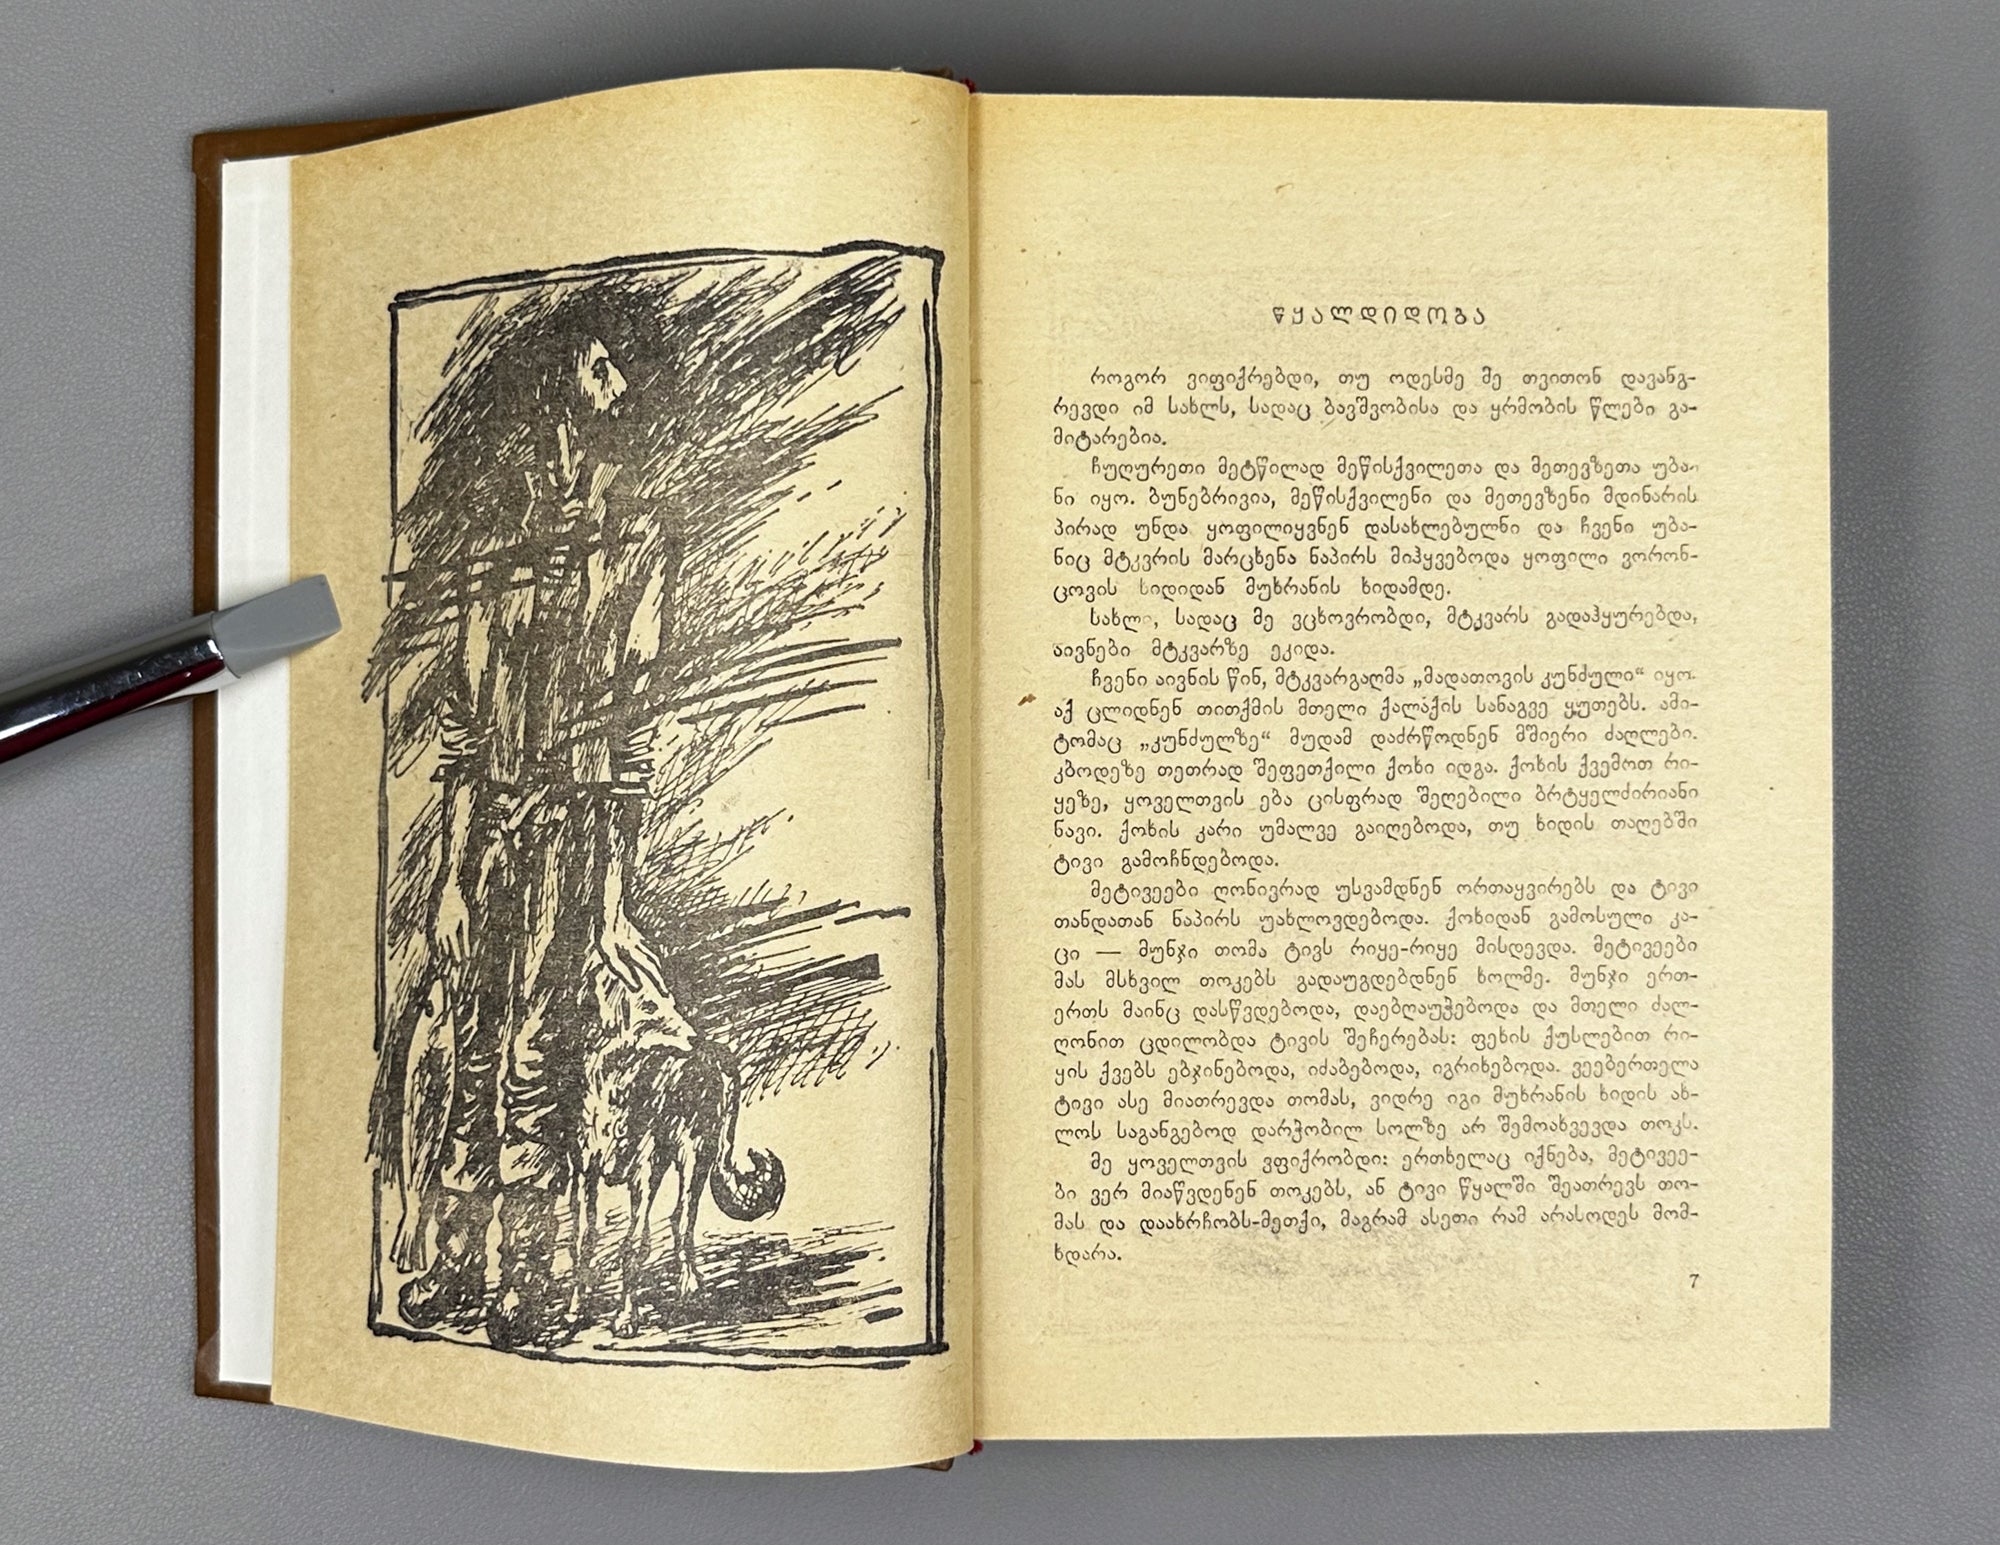 წყალდიდობა
როგორ ვიფიქრებდი, თუ ოდესმე მე თვითონ დავანგ-
რევდი იმ სახლს, სადაც ბავშვობისა და ყრმობის წლები გა-
მიტარებია.
ჩუღურეთი მეტწილად მეწისქვილეთა და მეთევზეთა უბა-
ნი იყო. ბუნებრივია, მეწისქვილენი და მეთევზენი მდინარის
პირად უნდა ყოფილიყვნენ დასახლებულნი და ჩვენი უბა-
ნიც მტკვრის მარცხენა ნაპირს მიჰყვებოდა ყოფილი ვორონ-
ცოვის ხიდიდან მუხრანის ხიდამდე.
სახლი, სადაც მე ვცხოვრობდი, მტკვარს გადაჰყურებდა,
აივნები მტკვარზე ეკიდა.
ჩვენი აივნის წინ, მტკვარგაღმა „მადათოვის კუნძული“ იყო.
აქ ცლიდნენ თითქმის მთელი ქალაქის სანაგვე ყუთებს. ამი-
ტომაც „კუნძულზე“ მუდამ დაძრწოდნენ მშიერი ძაღლები.
კბოდეზე თეთრად შეფეთქილი ქოხი იდგა. ქოხის ქვემოთ რი-
ყეზე, ყოველთვის ება ცისფრად შეღებილი ბრტყელძირიანი
ნავი. ქოხის კარი უმალვე გაიღებოდა, თუ ხიდის თაღებში
ტივი გამოჩნდებოდა.
მეტივეები ღონივრად უსვამდნენ ორთაყვირებს და ტივი
თანდათან ნაპირს უახლოვდებოდა. ქოხიდან გამოსული კა-
ცი — მუნჯი თომა ტივს რიყე-რიყე მისდევდა. მეტივეები
მას მსხვილ თოკებს გადაუგდებდნენ ხოლმე. მუნჯი ერთ-
ერთს მაინც დასწვდებოდა, დაებღაუჭებოდა და მთელი ძალ-
ღონით ცდილობდა ტივის შეჩერებას: ფეხის ქუსლებით რი-
ყის ქვებს ებჯინებოდა, იძაბებოდა, იგრიხებოდა. ვეებერთელა
ტივი ასე მიათრევდა თომას, ვიდრე იგი მუხრანის ხიდის ახ-
ლოს საგანგებოდ დარჭობილ სოლზე არ შემოახვევდა თოკს.
მე ყოველთვის ვფიქრობდი: ერთხელაც იქნება, მეტივეე-
ბი ვერ მიაწვდენენ თოკებს, ან ტივი წყალში შეათრევს თო-
მას და დაახრჩობს-მეთქი, მაგრამ ასეთი რამ არასოდეს მომ-
ხდარა.
7